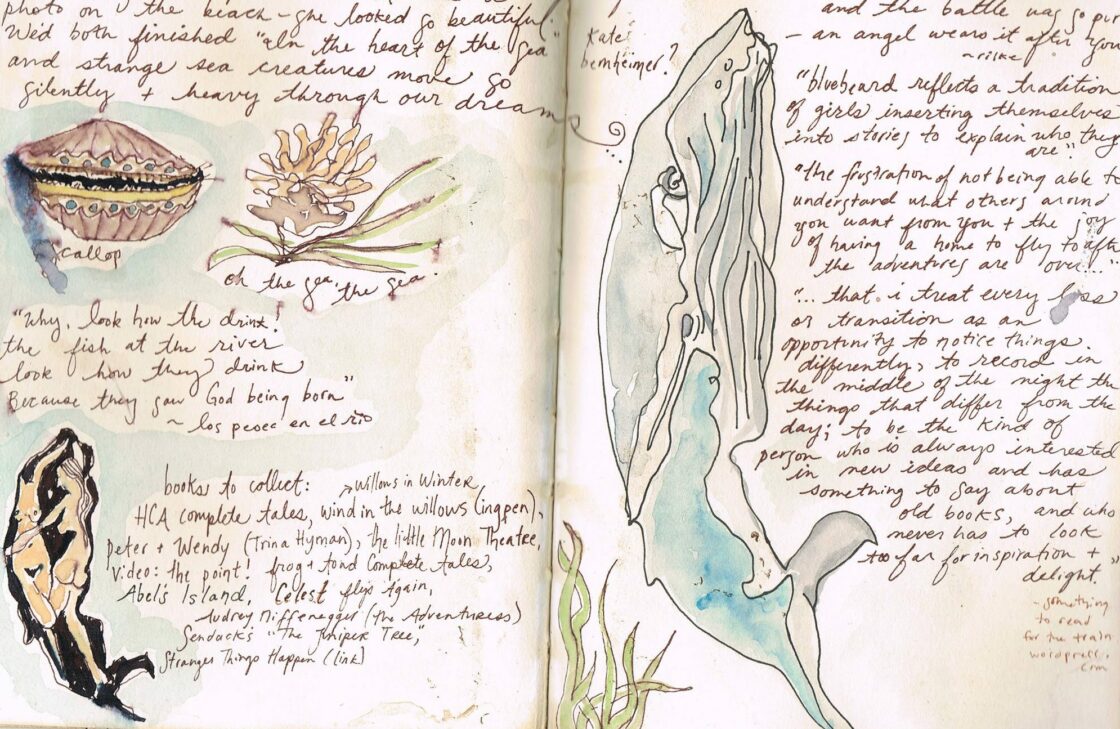 photo on the beach - she looked so beautiful.
We'd both finished "In the heart of the sea"
and strange sea creatures move so
silently + heavy through our dreams
scallop
oh the sea, the sea.
"Why, look how the drink!
the fish at the river
look how they drink
Because they saw God being born"
~ los peces en el rio
books to collect: > willows in Winter,
HCA complete tales, wind in the willows (ingpen),
peter + Wendy (Trina Hyman), the little Moon Theatre,
video: the point! frog + toad Complete tales,
Abel's Island, Celest flip Again,
Audrey Niffenegger (the Adventuress)
Sendacks "The Juniper Tree",
Stranges Things Happen (link)
Kate
bernheimer?
and the battle was so
- an angel wears it after
~ rilke
"bluebeard reflects a tradition
of girls inserting themselves
into stories to explain who they
are."
"the frustration of not being able to
understand what others around
you want from you + the joy
of having a home to fly to after
the adventures are over!..."
"... that i treat every loss
or transition as an
opportunity to notice things
differently, to record in
the middle of the night
things that differ from the
day; to be the kind of
person who is always interested
in new ideas and has
something to say about
old books, and who
never has to look
too far for inspiration +
delight."
- something
to read
for the train
wordpress.
com